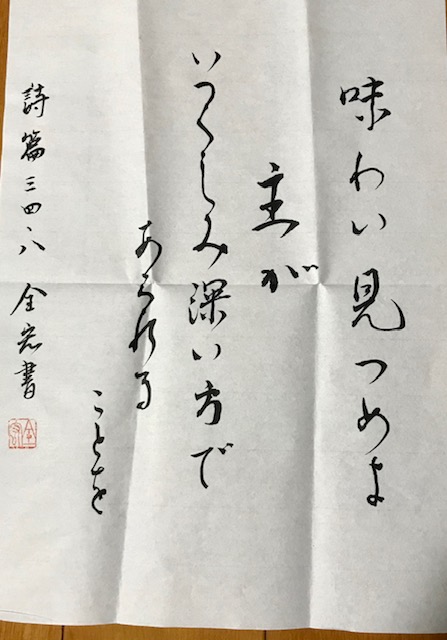 味わい見つめよ
主が
いつくしみ深い方で
あられる
ことを
詩篇三四八 全岩書